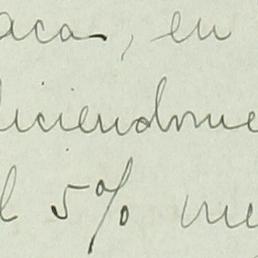 aca, en
diciendome
l 5% me